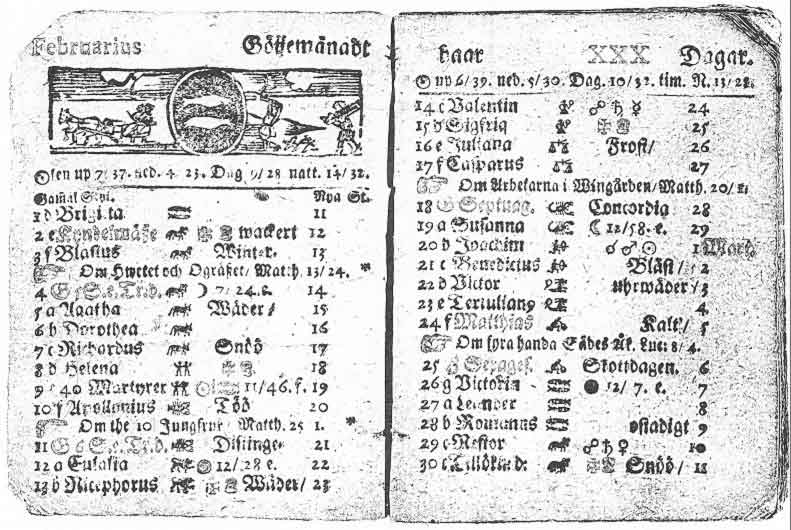 Februarius Göijemånadt
Solen up 7/37. ned. 4 23. Dag 9/28 natt. 14/32.
Gamal Styl. Nya St.
1 d Brigitta 11
2 e Kyndelmässe wackert 12
3 f Blasius Winter. 13
Om Hwetet och Ogräset/ Matth. 13/24.
4 G 5 S. e. Tr. d. 7/24. e. 14
5 a Agatha Wäder/ 15
6 b Dorothea 16
7 c Richardus Snöö 17
8 d Helena 18
9 e 40 Martyrer 11/46. f. 19
10 f Apollonius Töö 20
Om the 10 Jungfrur/ Matth. 25 1.
11 G 6 S. e. Tr. d. Distinge 21
12 a Eulalia 12/28 e. 22
13 b Nicephorus Wäder/ 23
haar XXX Dagar.
up 6/39. ned. 5/30. Dag. 10/32. tim. N. 13/28.
14 c Valentin ☍ ♄ ☿ 24
15 d Sigfrid 25
16 e Juliana Frost/ 26
17 f Casparus 27
Om Arbetarna i Wingården/ Matth. 20/1.
18 G Septuag. Concordia 28
19 a Susanna ☾ 12/58. e. 29
20 b Joachim ☌ ♂ ☉ 1 Mart.
21 c Benedictus Bläst/ 2
22 d Victor uhrwäder/ 3
23 e Tertulian9 4
24 f Matthias Kalt/ 5
Om fyra handa Sädes Åk. Luc: 8/4.
25 G Sexages. Skottdagen. 6
26 g Victorin ● 12/7. e. 7
27 a Leander 8
28 b Romanus ostadigt 9
29 c Nestor ☍ ♄ ♀ 10
30 c Snöö/ 11